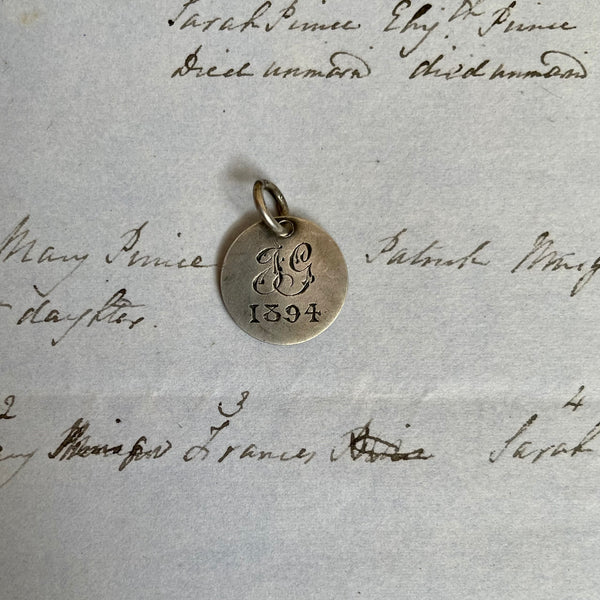 Sarah Prince Eliz.th Prince
Died unmarrd died unmarrd
Mary Prince Patrick
daughter.
JG
1894
2 3 4
Frances Sarah